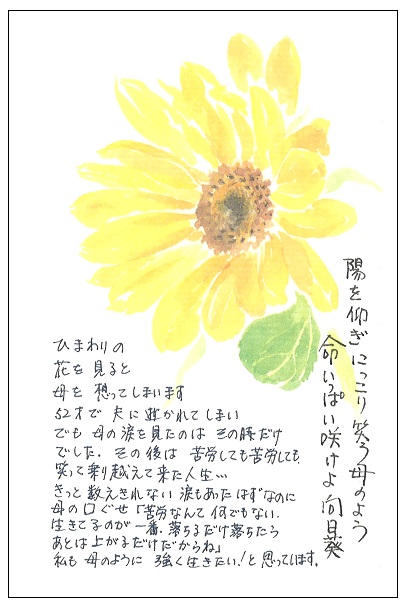 陽を仰ぎにっこり笑う母のよう
命いっぱい咲けよ向日葵
ひまわりの
花を見ると
母を想ってしまいます
52才で夫に逝かれてしまい
でも母の涙を見たのはその時だけ
でした。その後は苦労しても苦労しても、
笑って乗り越えて来た人生…
きっと数えきれない涙もあったはずなのに
母の口ぐせ「苦労なんて何でもない。
生きてるのが一番。落ちるだけ落ちたら
あとは上がるだけだからね」
私も母のように強く生きたい!と思っています。